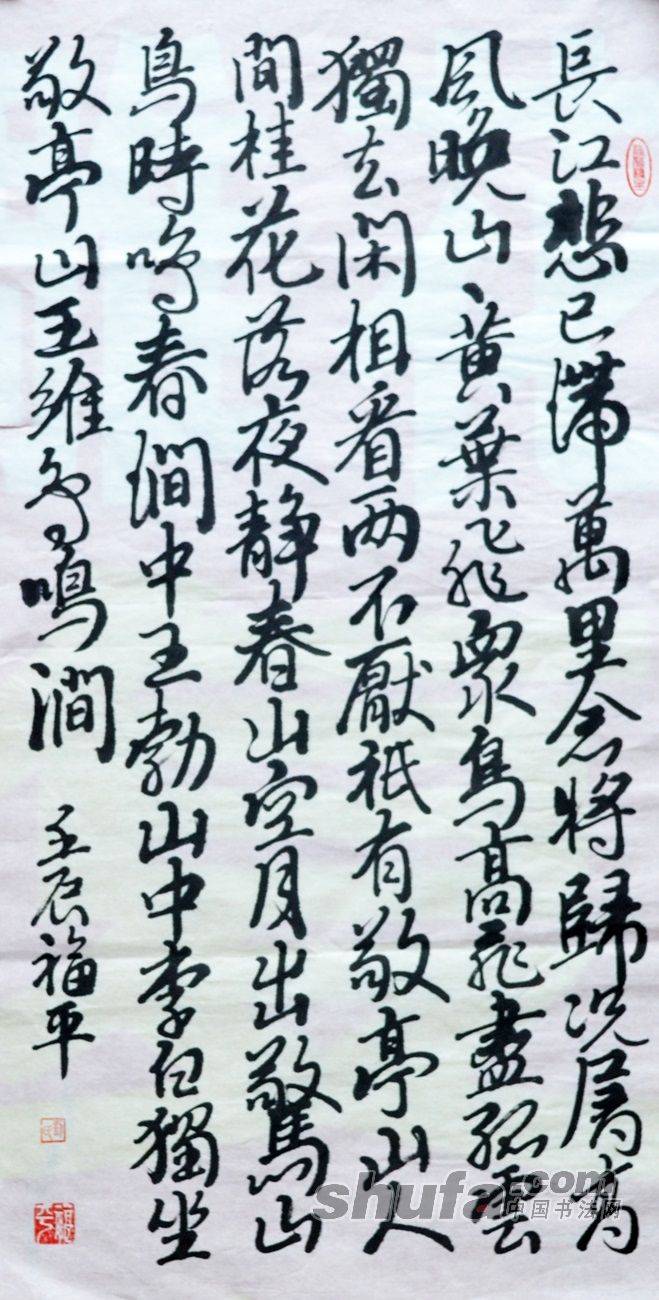 長江悲已滯萬里念將歸况屬高
風晚山〻黄葉飛衆鳥高飛盡孤雲
獨去閑相看两不厭祇有敬亭山人
間桂花落夜静春山空月出驚山
鳥時鳴春澗中王勃山中李白獨坐
敬亭山王維鳥鳴澗
壬辰福平
shufa.com
中国书法网